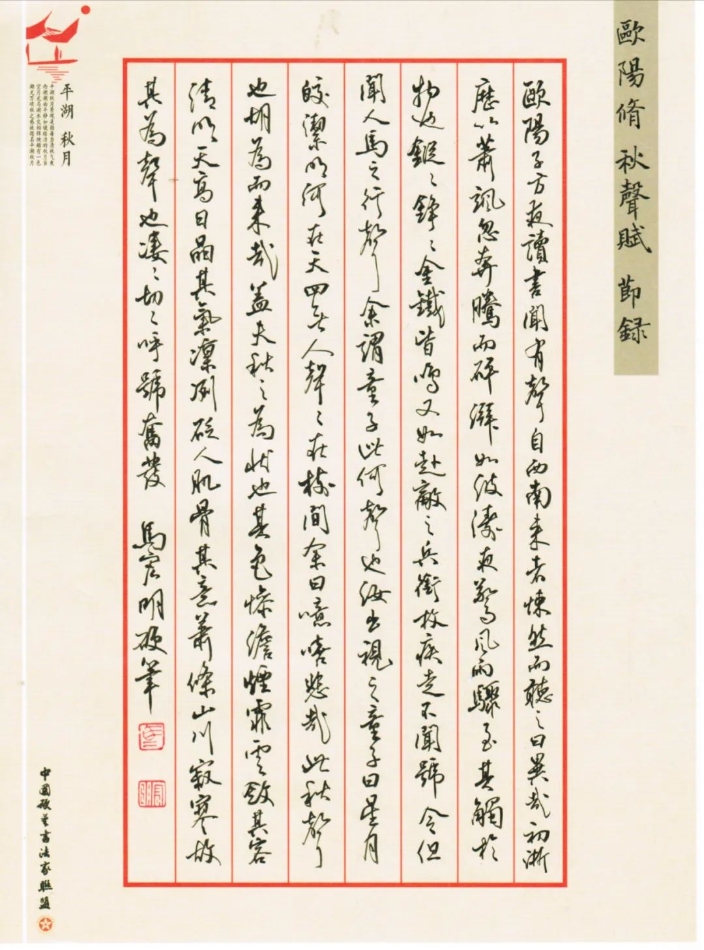 歐陽脩 秋聲賦 節録
歐陽子方夜讀書聞有聲自西南来者悚然而聽之曰異哉初淅
歷以蕭颯忽奔騰而砰湃如波濤夜驚風雨驟至其觸於
物也鏦〻錚〻金鐵皆鳴又如赴敵之兵銜枚疾走不聞號令但
聞人馬之行聲余謂童子此何聲也汝出視之童子曰星月
皎潔明河在天四無人聲〻在樹間余曰噫嘻悲哉此秋聲
也胡為而来哉蓋夫秋之為狀也其色慘澹煙霏雲斂其容
清明天高日晶其氣凛冽砭人肌骨其意蕭條山川寂寥故
其為聲也凄〻切〻呼號奮發 馬宏明硬筆
平湖 秋月
中國硬筆書法家聯盟